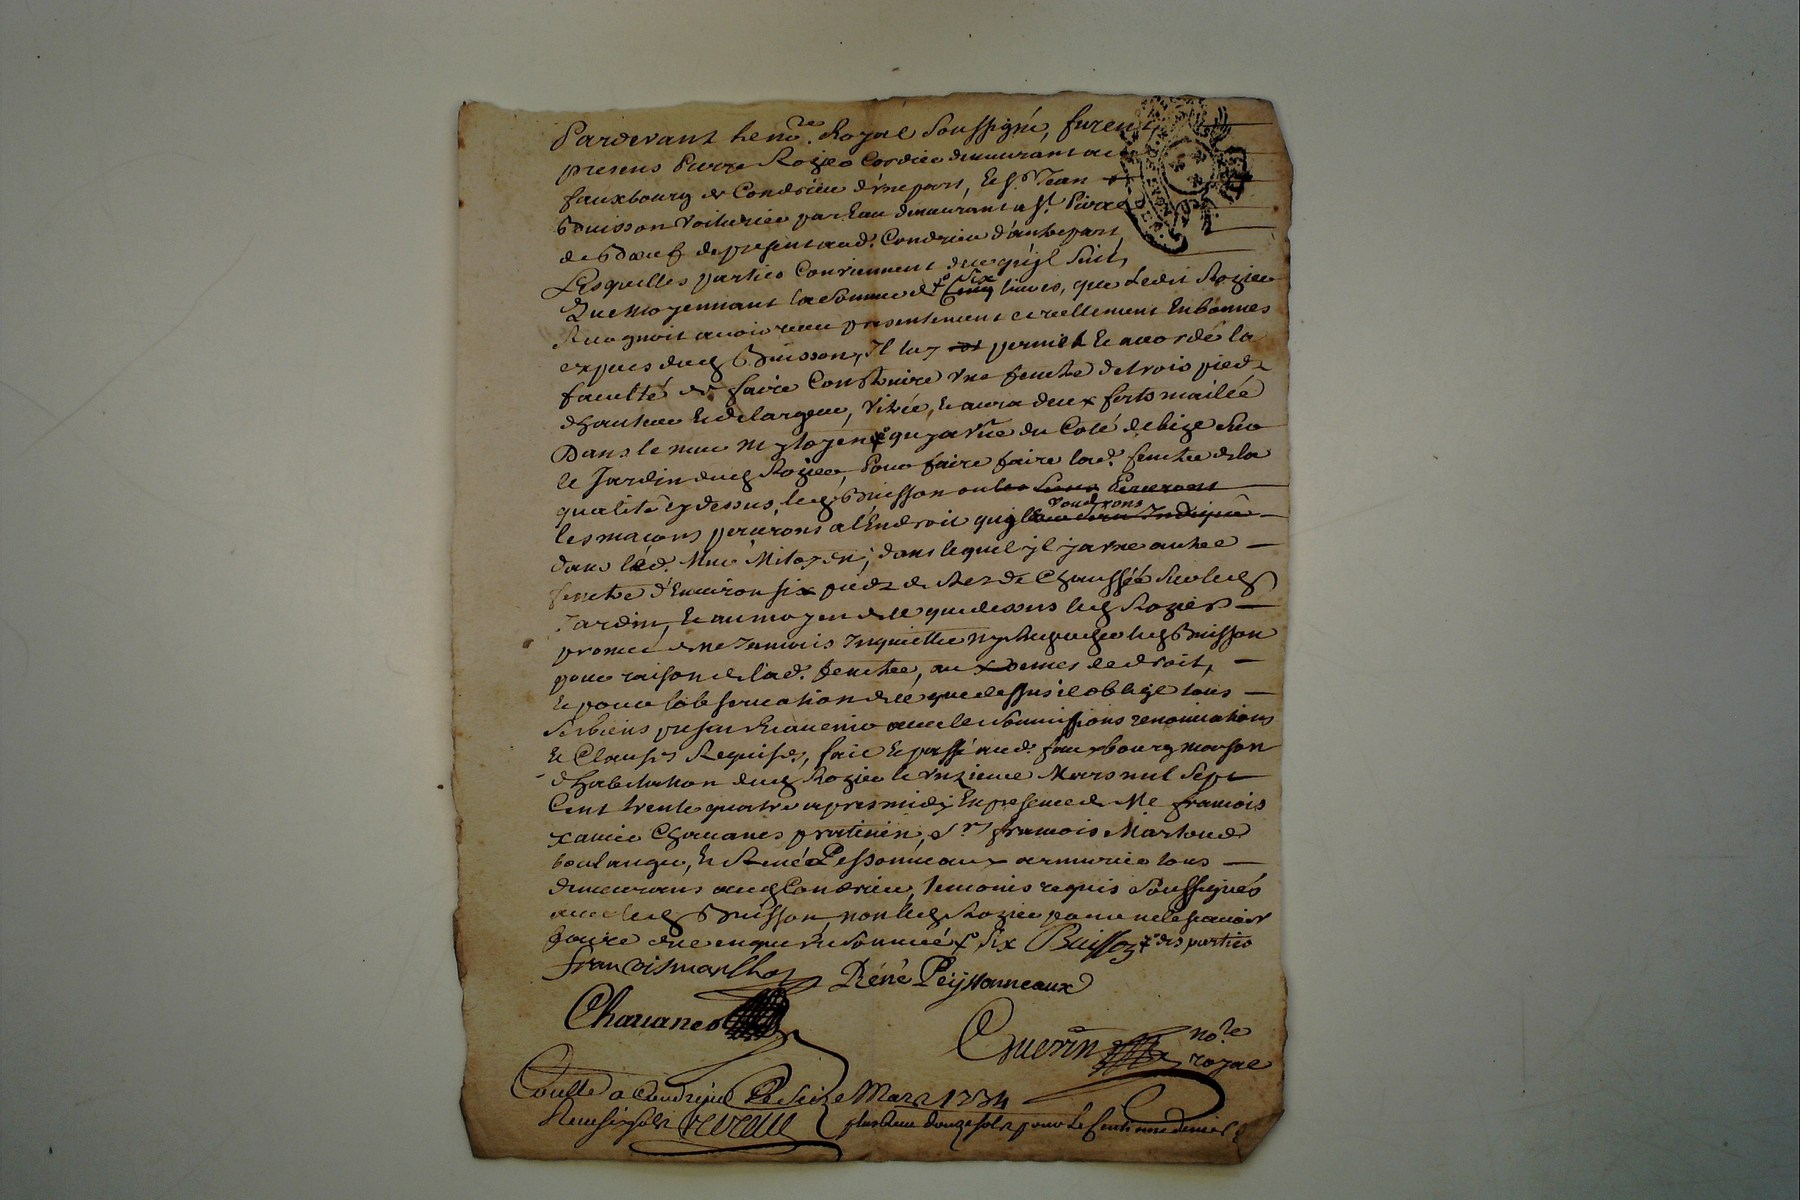 Pardevant le no.re Royal Soussigné, furent
presens Pierre Rozier Cordier demeurant au
fauxbourg de Condrieu d'une part, le S. Jean
Buisson Voiturier par Eau demeurant a St. Pierre
de Boeuf de present aud. Condrieu d'autre part,
Lesquelles parties Conviennent de ce qu'il suit,
Que moyennant la Somme de six livres, que Ledit Rozier
Recognoit avoir receu presentement et reellement En bonnes
especes dud Buisson, Il luy permet Et accorde la
faculté de faire Construire une fenetre de trois pieds
d'hauteur Et de largeur, Vitrée, Et aura deux forts maillée
Dans le mur mytoyen qu'y a rue du Coté de bize Sur
le Jardin dud Rozier, Pour faire faire lad. fenetre de la
qualité cy dessus, led Buisson ou
les maçons perceront a l'Endroit qu'il voudrons
dans led. Mur Mitoyen, dans lequel il y a une autre
fenetre d'Environ six pieds de Rez de Chaussée Sur led
Jardin, Et au moyen de ce que dessus led Rozier
promet de ne Jamais Inquietter ny rechercher led Buisson
pour raison de lad. fenetre, aux termes de droit,
Et pour l'observation de ce que dessus il oblige tous
Ses biens presens Et avenir avec les Soumissions renonciations
Et Clauses Requises, fait Et passé aud. fauxbourg maison
d'habitation dud Rozier le unzieme Mars mil Sept
Cent trente quatre apres midy En presence de Me francois
xavier Chavanes praticien, Sr francois Martoud
boulanger, Et René Pessonneaux armurier tous
demeurans aud Condrieu, temoins requis Soussignés
avec led Buisson, non led Rozier pour ne le scavoir
faire de ce enquis Et Sommé six Buisson des parties
francois marthoz René Peÿssonneaux
Chauanes
Guerin no.re
royal
Coulle a Condrieu Le Seize Mars 1734
Neuf sols plus Receu douze sols pour Le Centieme denier